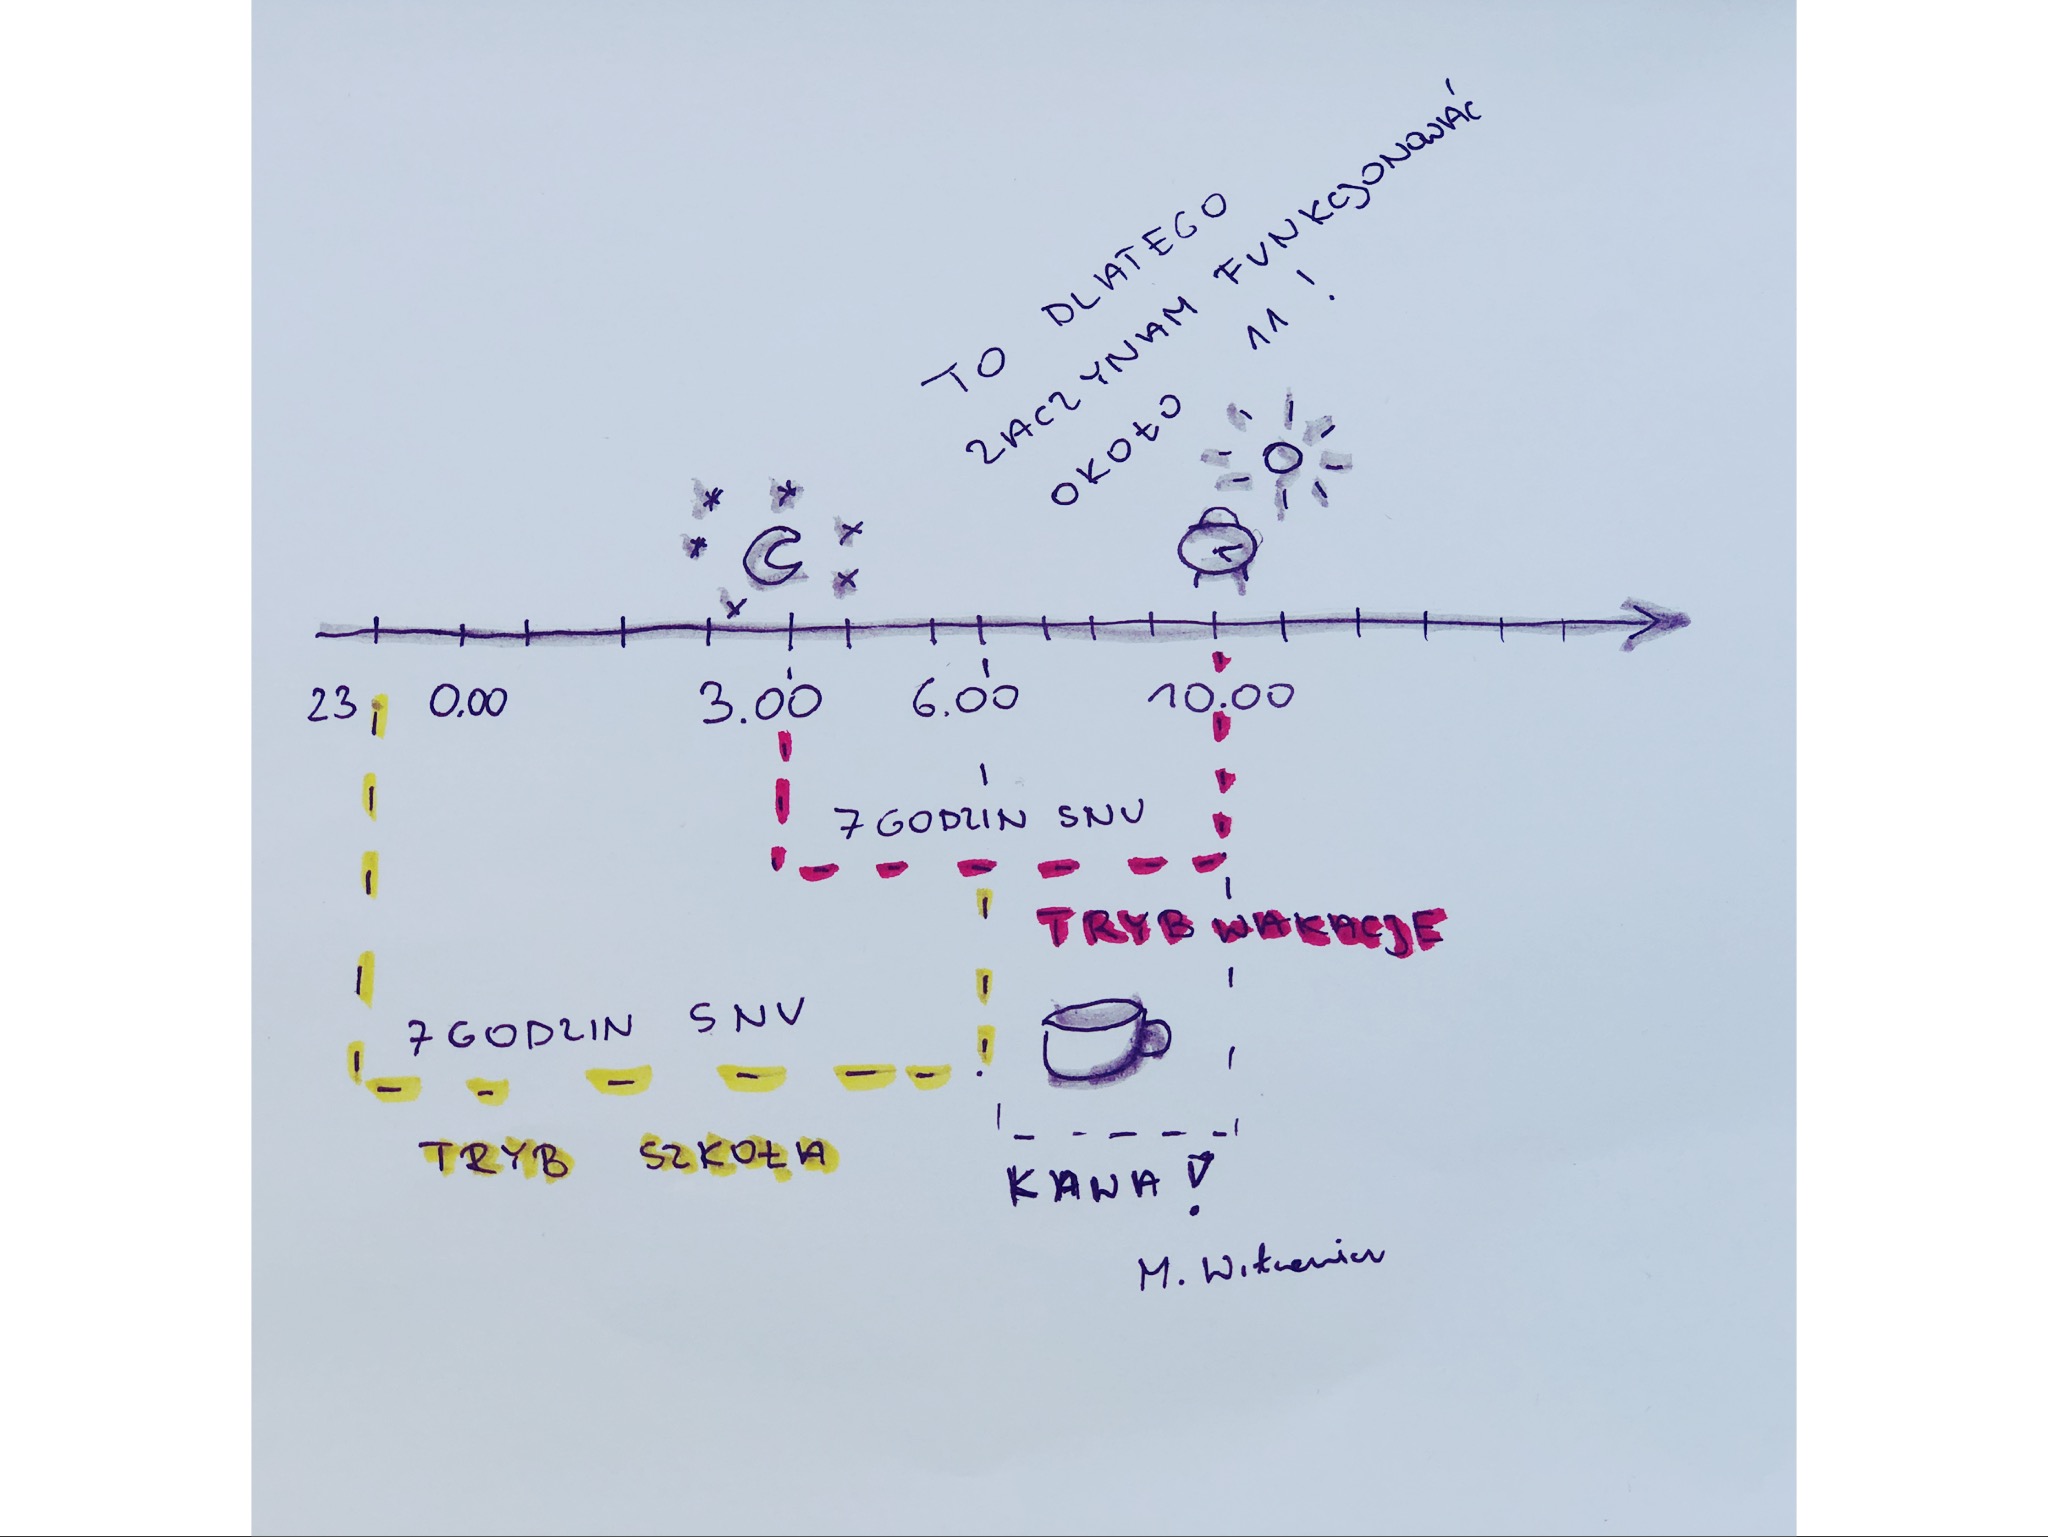 TO DLATEGO
ZACZYNAM FUNKCJONOWAĆ
OKOŁO 11!
23 0.00 3.00 6.00 10.00
7 GODZIN SNU
TRYB WAKACJE
7 GODZIN SNU
TRYB SZKOŁA
KAWA!
M.